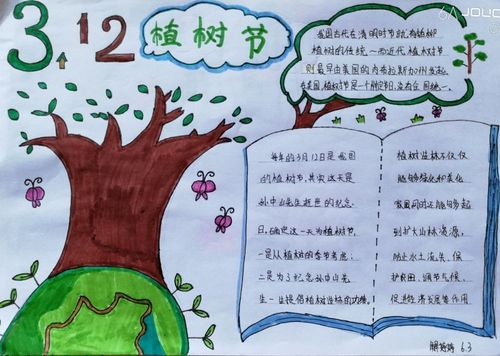 3.12
植树节
我国古代在清明时节就有植树
植树的传统,而近代植树节
则最早由美国的内布拉斯加州发起
在美国,植树节是一个州定节日,没有全国统一
每年的3月12日是我国
的植树节,其实这天是
孙中山先生逝世的纪念
日,确定这一天为植树节,
一是从植树的季节考虑;
二是为了纪念孙中山先
生一生提倡植树造林的功绩,
植树造林不仅仅
能够绿化和美化
家园同时还能够起
到扩大山林资源,
防止水土流失,保
护农田,调节气候,
促进经济发展等作用
6.3